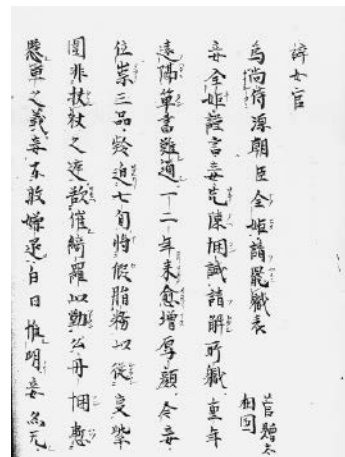 辞女官
為尚侍源朝臣全姫請罷職表
菅贈太
相国
妾全姫謹言妾先陳悃誠請解所職重年
遠隔単書難通一二年来愈増厚顔今妾
位崇三品齢迫七旬将假脂粉以従
闈非扶杖之歎催綺羅以勤公丹悃
之義妾不敢嫌退白日惟明妾為